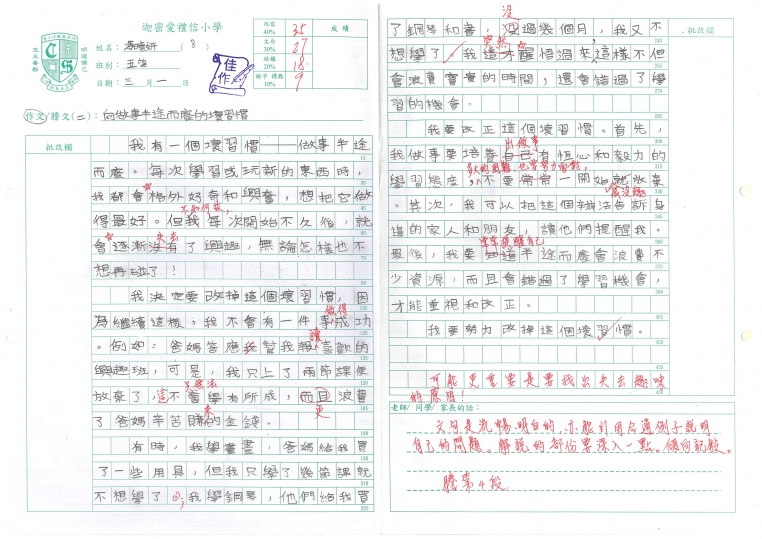 迦密愛禮信小學
姓名： (8)
班別：五
日期：三月一日
內容 40% 35
文句 30% 27
結構 20% 18
錯字·標點 10% 9
成績
佳作
作文/謄文(二)：向做事半途而廢的壞習慣
批改欄
我有一個壞習慣——做事半途
而廢。每次學習或玩新的東西時，
我都會格外好奇和興奮，想把它做
不知何故，
得最好。但我每次開始不久後，就
失去
會逐漸沒有了興趣，無論怎樣也不
想再碰了！
我決定要改掉這個壞習慣，因
做得
為繼續這樣，我不會有一件事成功
讓
。例如：爸媽答應我幫我報喜歡的
興趣班，可是，我只上了兩節課便
放棄了，這不會學有所成，而且浪費
來 更
了爸媽辛苦賺的金錢。
有時，我學畫畫，爸媽給我買
了一些用具，但我只學了幾節課就
不想學了；我學鋼琴，他們給我買
批改欄
沒
了鋼琴和書，沒過幾個月，我又不
想學了。我這才醒悟過來，這樣不但
會浪費寶貴的時間，還會錯過了學
習的機會。
我要改正這個壞習慣。首先，
出做事
我做事要培養自己有恒心和毅力的
學習態度，不要常常一開始就放棄
其次，我可以把這個辦法告訴身
邊的家人和朋友，讓他們提醒我。
常常提醒自己
最後，我要知道半途而廢會浪費不
少資源，而且會錯過了學習機會，
才能重視和改正。
我要努力改掉這個壞習慣。
可能更重要是要找出失去趣味
的原因！
老師/同學/家長的話：
文句是流暢、明白的，亦能引用合適例子說明
自己的問題。解說的部份要深入一點。傾向記敘。
謄第4段